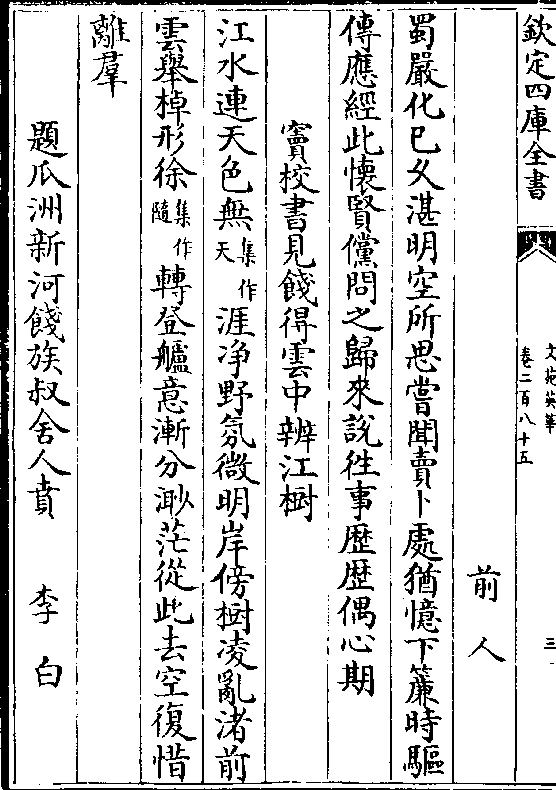 欽定四庫全書
文苑英華
卷二百八十五
三
前人
蜀嚴化已久湛明空所思嘗聞賣卜處猶憶下簾時驅
傳應經此懷賢儻問之歸來說往事歴歴偶心期
竇校書見餞得雲中辨江樹
江水連天色無集作天涯净野氛微明岸傍樹凌亂渚前
雲舉棹形徐集作隨轉登艫意漸分渺茫從此去空復惜
離羣
題瓜洲新河餞族叔舍人賁 李白